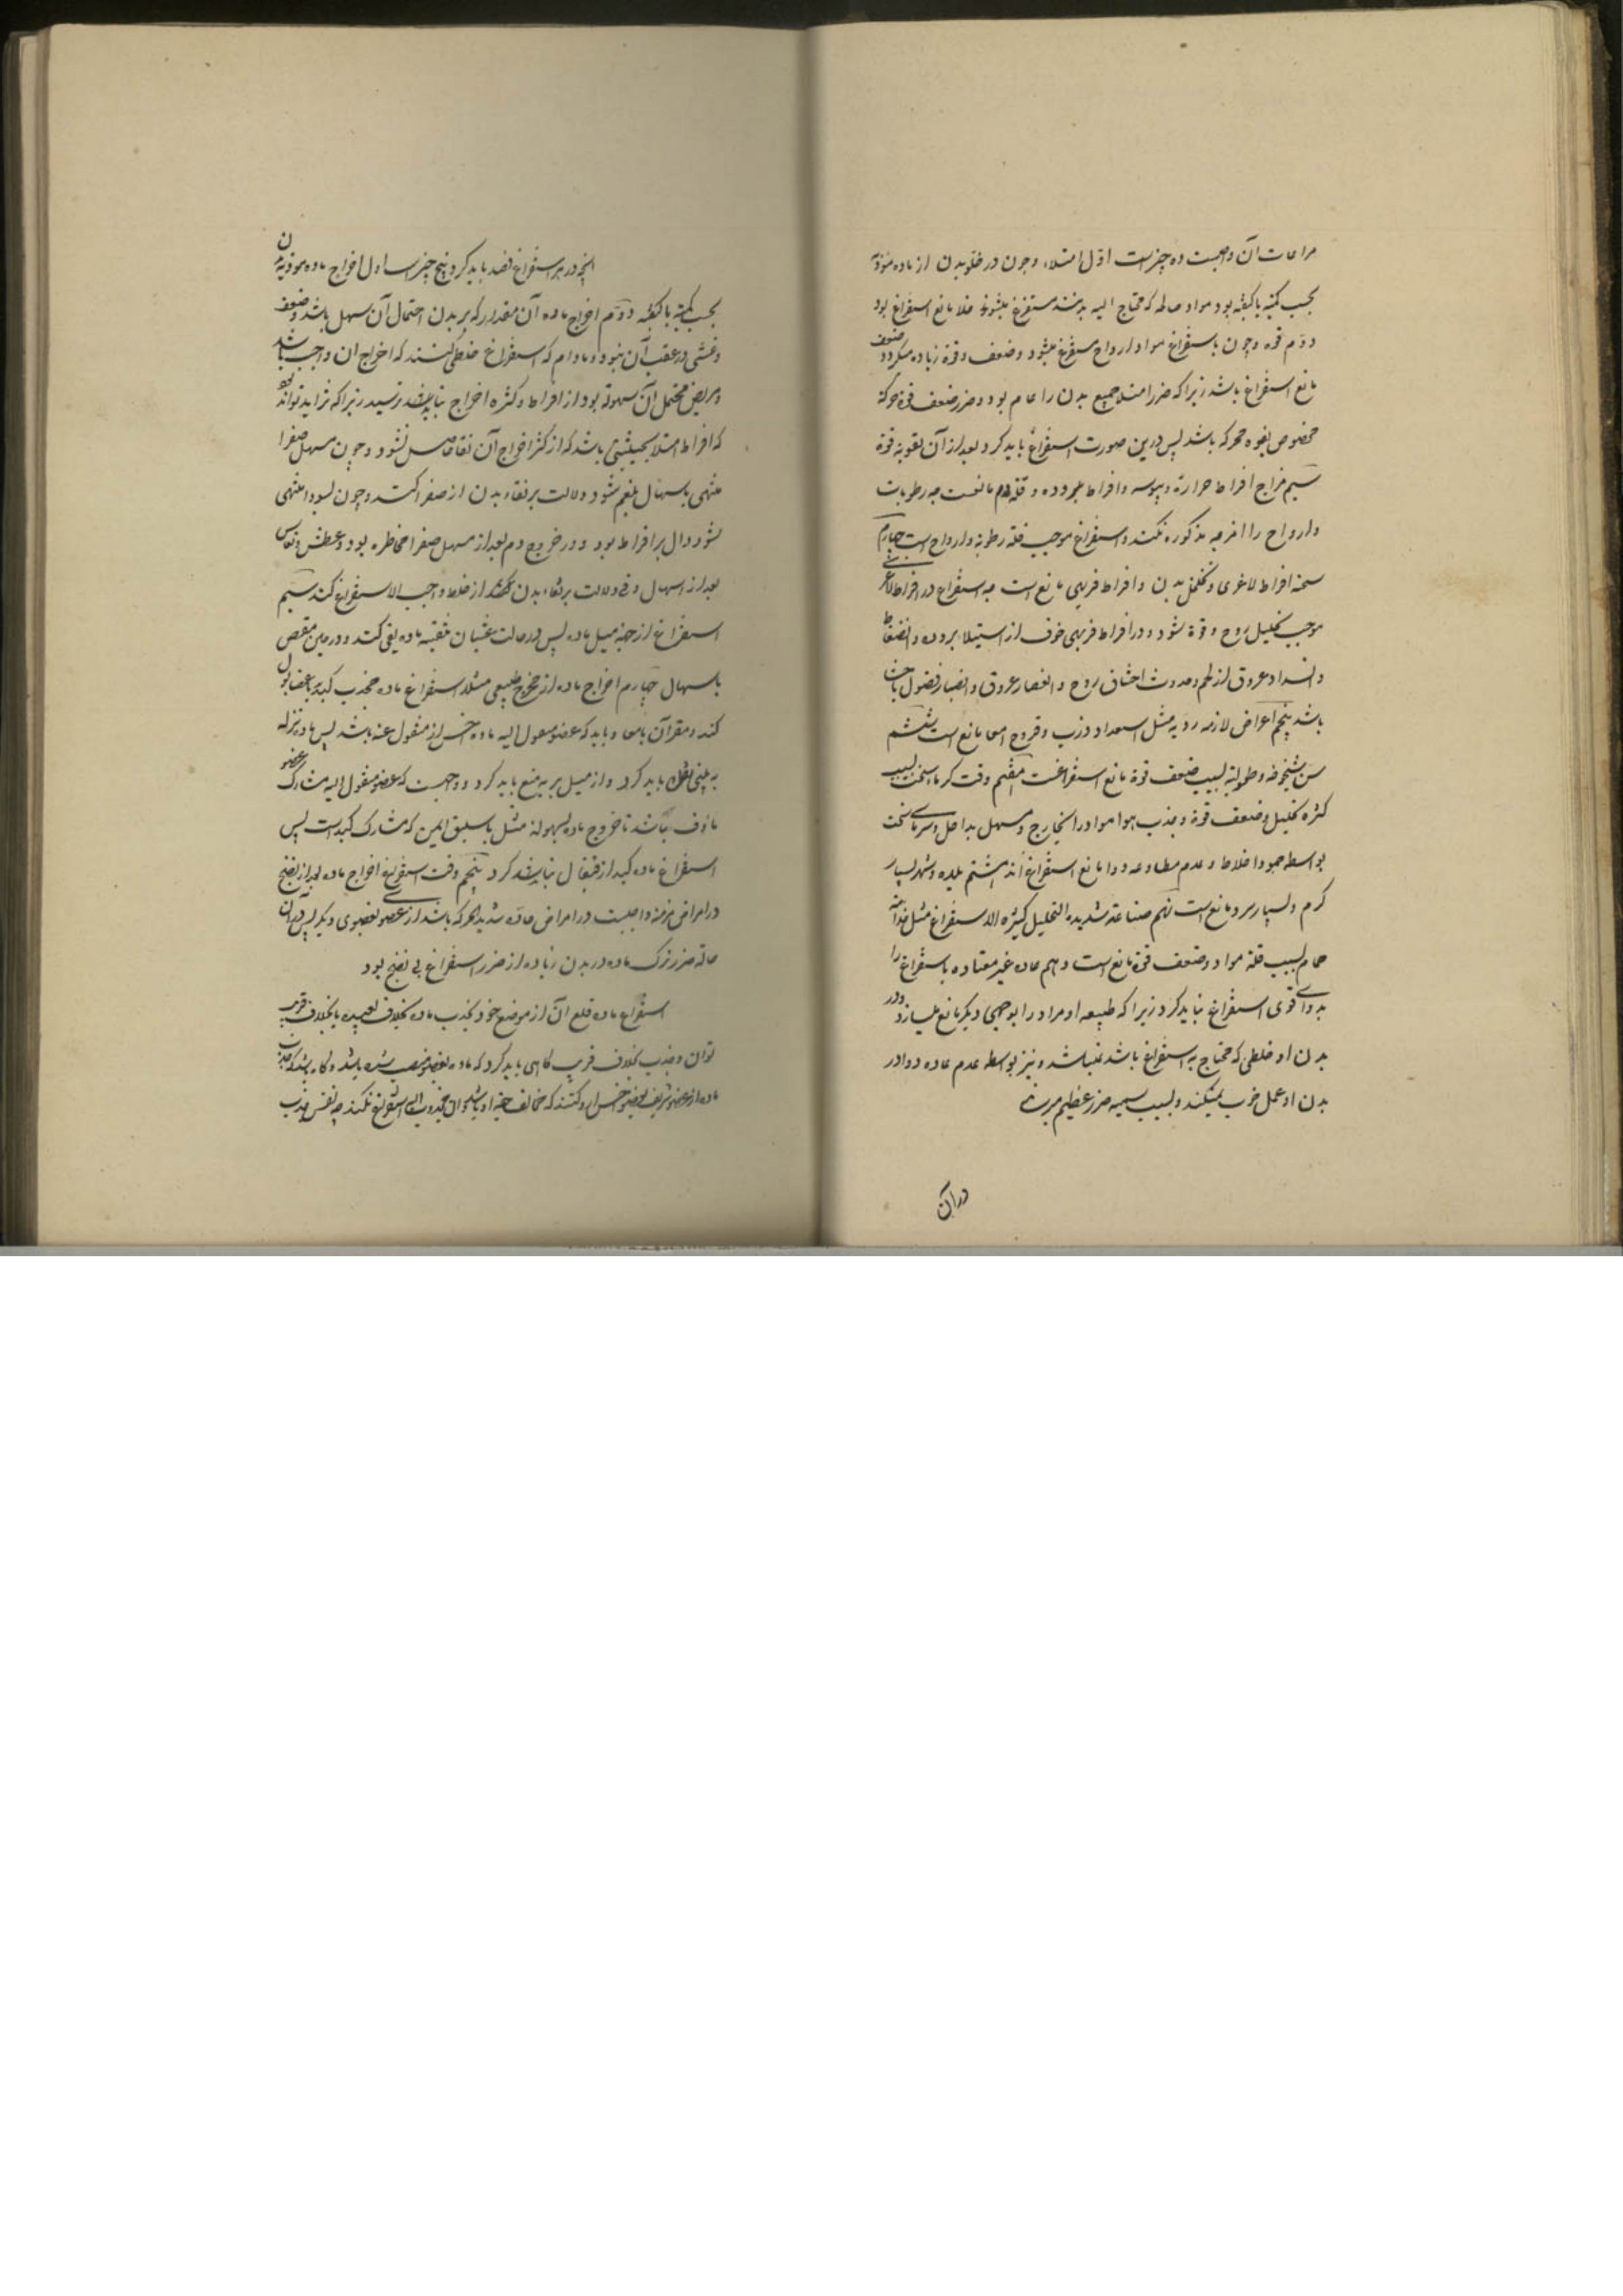 مراعات آن واجبست ده چیزست اوّل امتلاء وچون در خلو بدن از ماده موذیه
بحسب کمیّة یا کیفیّة بود مواد صالحه که محتاج الیه بدنند مستفرغ میشوند خلا مانع استفراغ بود
دوّم قوه وچون باستفراغ مواد ارواح مستفرغ میشود وضعف قوة زیاده میکردد ضعف
مانع استفراغ باشد زیرا که ضرر امتلا جمیع بدن را عام بود وضرر ضعف قوة حرکة
مخصوص بقوه محرکه باشد پس درین صورت استفراغ باید کرد وبعد از آن تقویة قوة
سیّم مزاج افراط حرارة ویبوسه وافراط برودة وقلة دم مانعست چه رطوبات
وارواح را امزجه مذکوره نکند واستفراغ موجب قلة رطوبة وارواح است چهارم
سحنه افراط لاغری وتخلخل بدن وافراط فربهی مانع است چه استفراغ در افراط لاغری
موجب تحلیل روح وقوة شود ودر افراط فربهی خوف از استیلا برودة وانضغاط
وانسداد عروق از لحم وحدوث اختناق روح وانعصار عروق وانصباب فضول باحشا
باشد پنجم اعراض لازمه ردیه مثل استعداد ذرب وقروح امعا مانع است ششم
سن شیخوخه وطفولیة بسبب ضعف قوة مانع استفراغست هفتم وقت کرما سخت بسبب
کثرة تحلیل وضعف قوة وجذب هوا مواد را بخارج ومسهل بداخل وسرمای سخت
بواسطه جمود اخلاط وعدم مطاوعه دوا مانع استفراغ اند هشتم بلده وشهر بسیار
کرم وبسیار سرد مانع است نهم صناعة شدیده التحلیل کثیره الاستفراغ مثل خدمة
حمام بسبب قلة مواد وضعف قوة مانع است دهم عاده غیر معتاده باستفراغ را
بدوای قوی استفراغ نباید کرد زیرا که طبیعه او مراد را بوجهی دیکر مانع میسازد ودر
بدن او خلطی که محتاج به استفراغ باشد نمیباشد ونیز بواسطه عدم عاده دوا در
بدن او عمل خوب نمیکند وبسبب سمیه ضرر عظیم میرساند
در آن
آنچه در هر استفراغ قصد باید کرد پنج چیز است اول اخراج ماده موذیه
بحسب کمیّة یا کیفیّه دوّم اخراج ماده آن مقدار که بر بدن احتمال آن سهل باشد وضعف
وغشی در عقب آن نبود ومادام که استفراغ خلطی کنند که اخراج آن واجب باشد
ومریض محتمل آن بسهولة بود از افراط وکثرة اخراج نباید ترسید زیرا که تواند بود
که افراط امتلا بحیثیتی باشد که از کثرة اخراج آن نقا حاصل نشود وچون مسهل صفرا
منتهی باسهال بلغم شود دلالت بر نقاء بدن از صفرا کند وچون بسودا منتهی
شود دال بر افراط بود ودر خروج دم بعد از مسهل صفرا مخاطره بود وعطش ونعاس
بعد از اسهال وقی دلالت بر نقاء بدن از خلط واجب الاستفراغ کند سیّم
استفراغ از جهة میل ماده پس در حالت غثیان تنقیه ماده بقی کنند ودر حین مغص
باسهال چهارم اخراج ماده از مخرج طبیعی مثلا استفراغ ماده محدب کبد باعضا بول
کند ومقعر آن بامعا وباید که عضو منقول الیه ماده اخس از منقول عنه باشد پس ماده نزله
به بینی نقل باید کرد واز میل بریه منع باید کرد وواجبست که عضو منقول الیه مشارک عضو
ماؤف باشد تا خروج ماده بسهولة مثل باسلیق ایمن که مشارک کبد است پس
استفراغ ماده کبد از قیفال نباید کرد پنجم وقت استفراغ اخراج ماده بعد از نضج
در امراض مزمنه واجبست در امراض حادّه شدید الحرکه باشد از عضو بعضوی دیکر پس در آن
حالة ضرر ترک ماده در بدن زیاده از ضرر استفراغ بی نضج بود
استفراغ ماده قلع آن از موضع خود بجذب ماده بخلاف بعید یا بخلاف قریب
توان وجذب بخلاف قریب کاهی باید کرد که ماده بعضو منصب شده باشد
ماده از عضو شریف بعضو اخس کنند که مخالف جهة او باشد